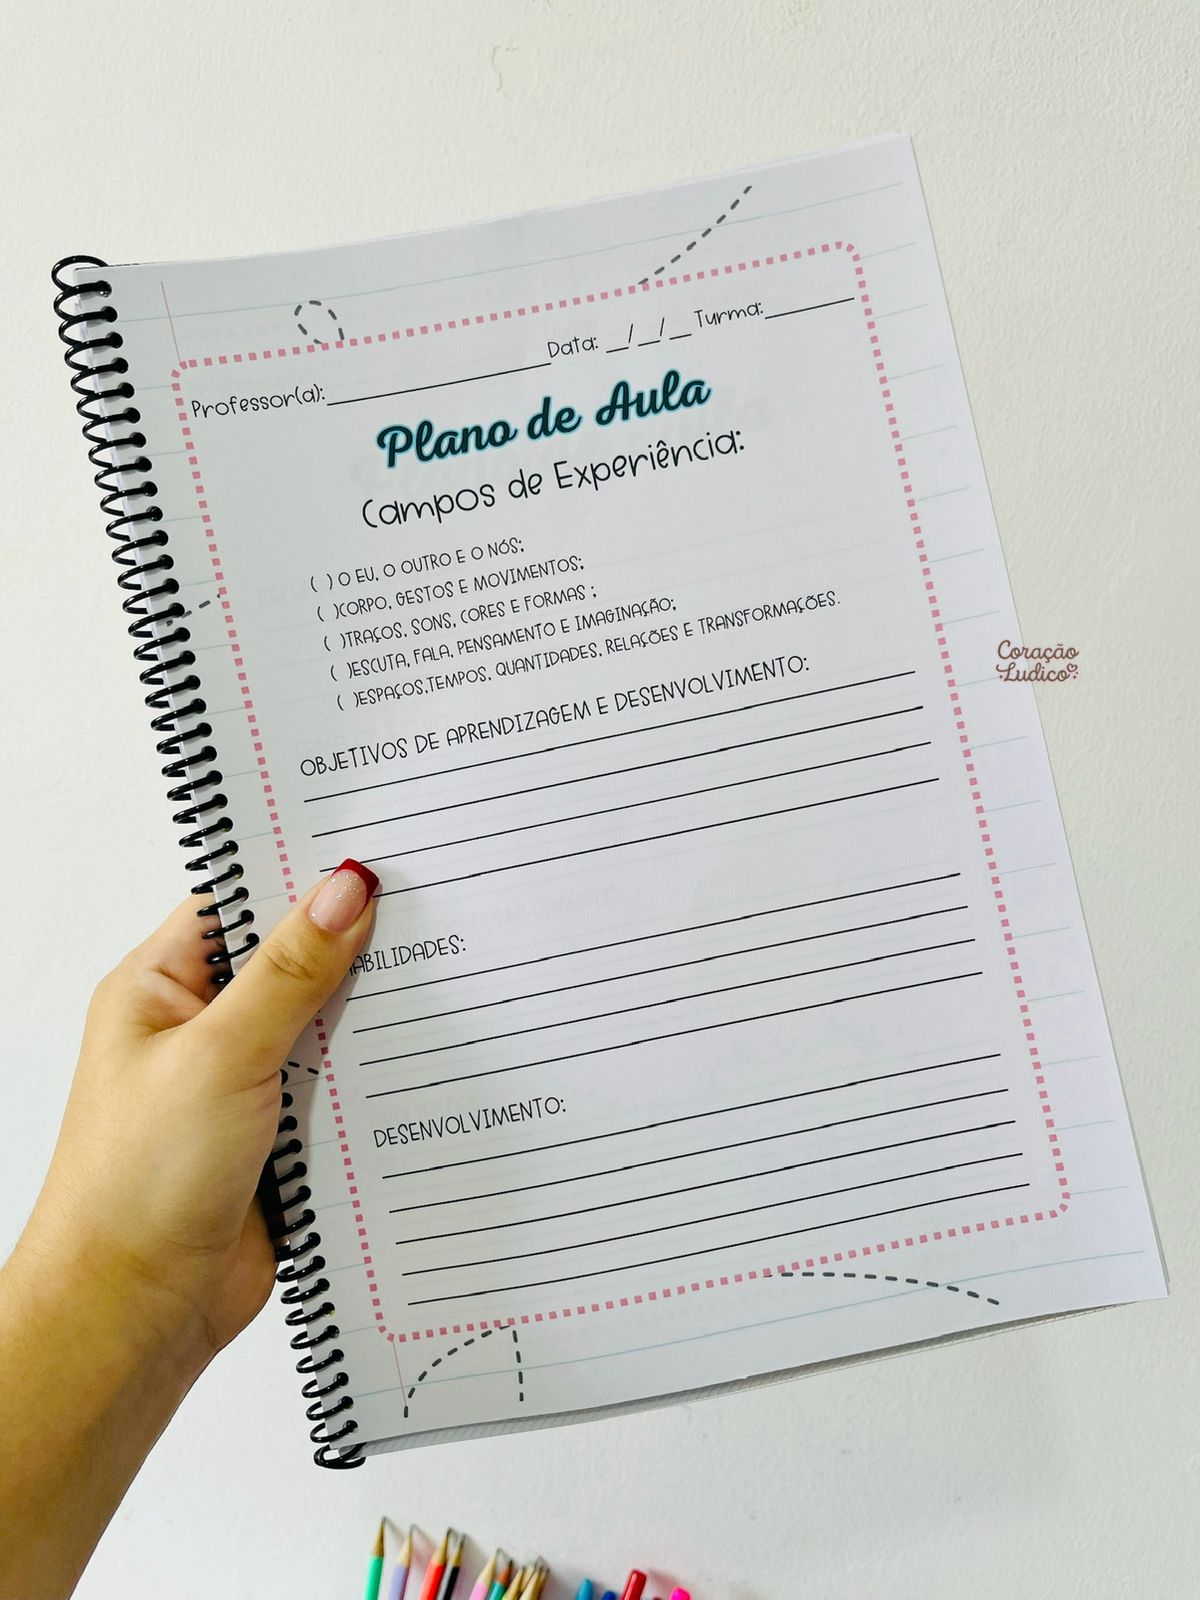 Professor(a):____________________Data: __/__/__ Turma:________
Plano de Aula
Campos de Experiência:
( ) O EU, O OUTRO E O NÓS;
( )CORPO, GESTOS E MOVIMENTOS;
( )TRAÇOS, SONS, CORES E FORMAS ;
( )ESCUTA, FALA, PENSAMENTO E IMAGINAÇÃO;
( )ESPAÇOS,TEMPOS, QUANTIDADES, RELAÇÕES E TRANSFORMAÇÕES.
OBJETIVOS DE APRENDIZAGEM E DESENVOLVIMENTO:
ABILIDADES:
DESENVOLVIMENTO:
Coração
Ludico